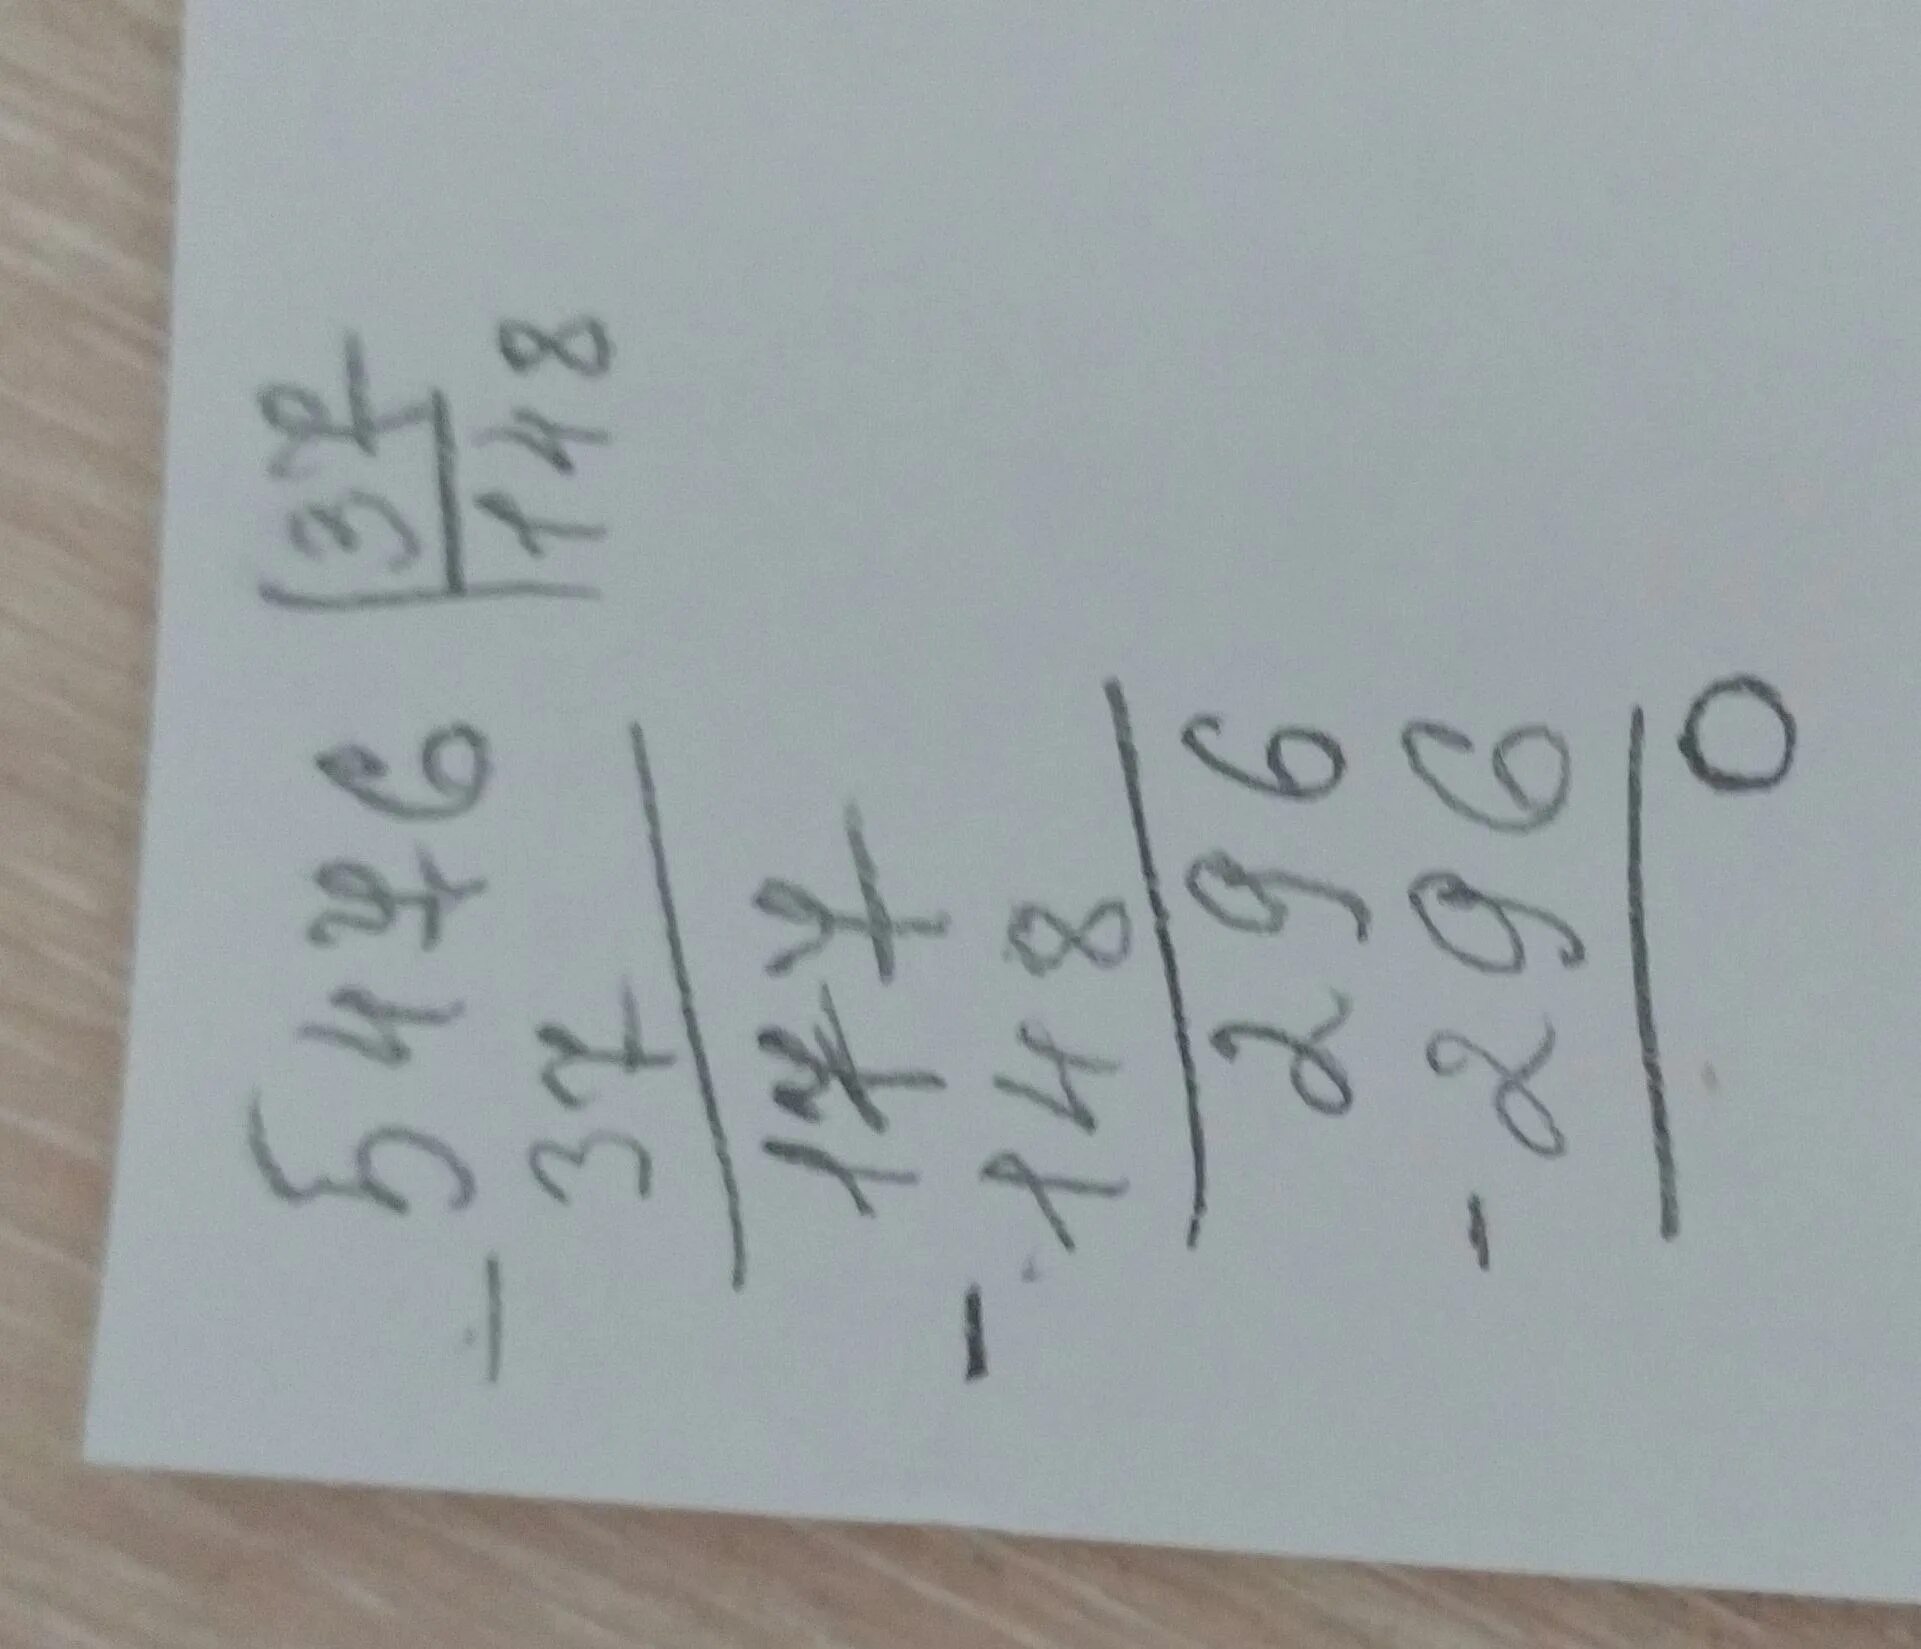 5476 | 37
148
- 37
177
- 148
296
- 296
0